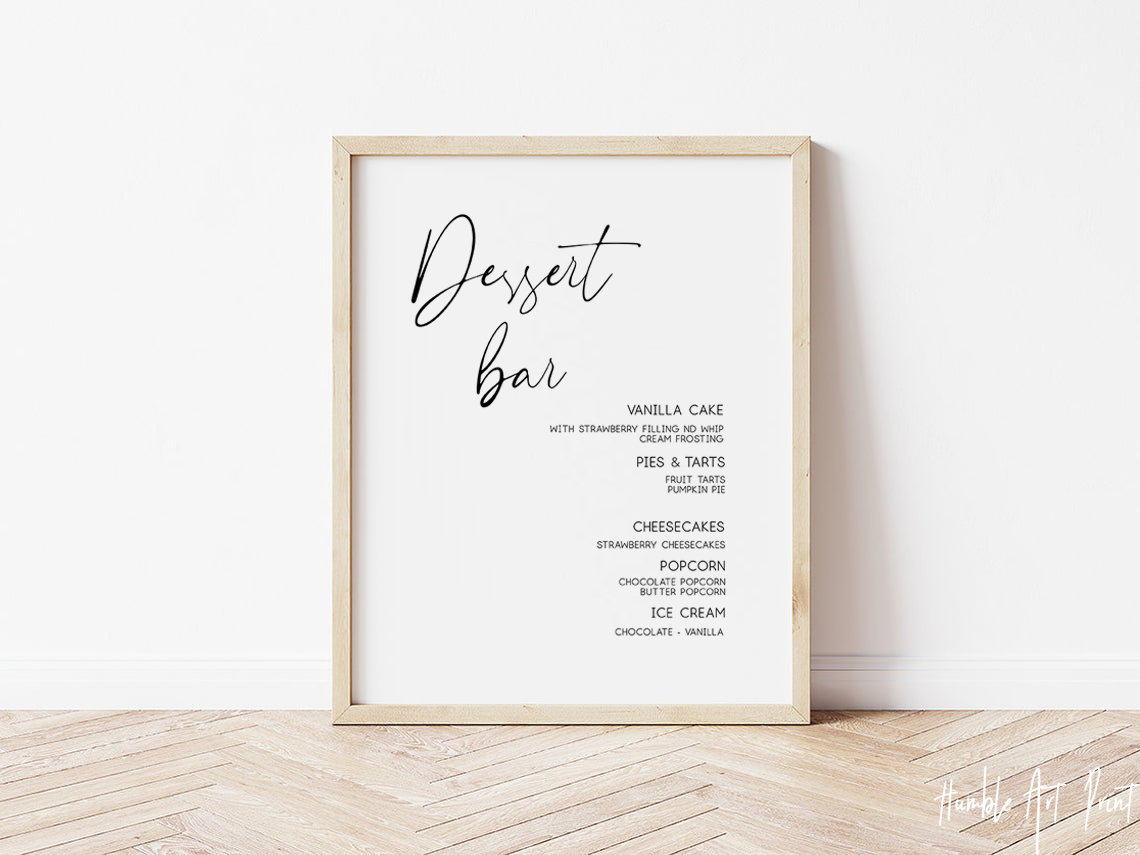 Dessert
bar
VANILLA CAKE
WITH STRAWBERRY FILLING ND WHIP
CREAM FROSTING
PIES & TARTS
FRUIT TARTS
PUMPKIN PIE
CHEESECAKES
STRAWBERRY CHEESECAKES
POPCORN
CHOCOLATE POPCORN
BUTTER POPCORN
ICE CREAM
CHOCOLATE - VANILLA
Humble Art Print